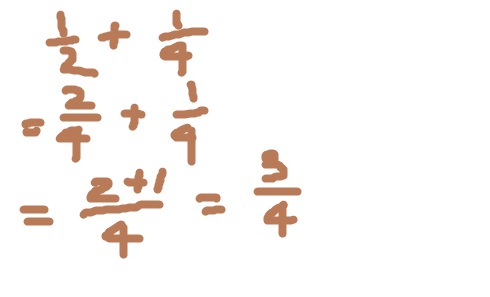 1/2 + 1/4
= 2/4 + 1/4
= (2+1)/4 = 3/4